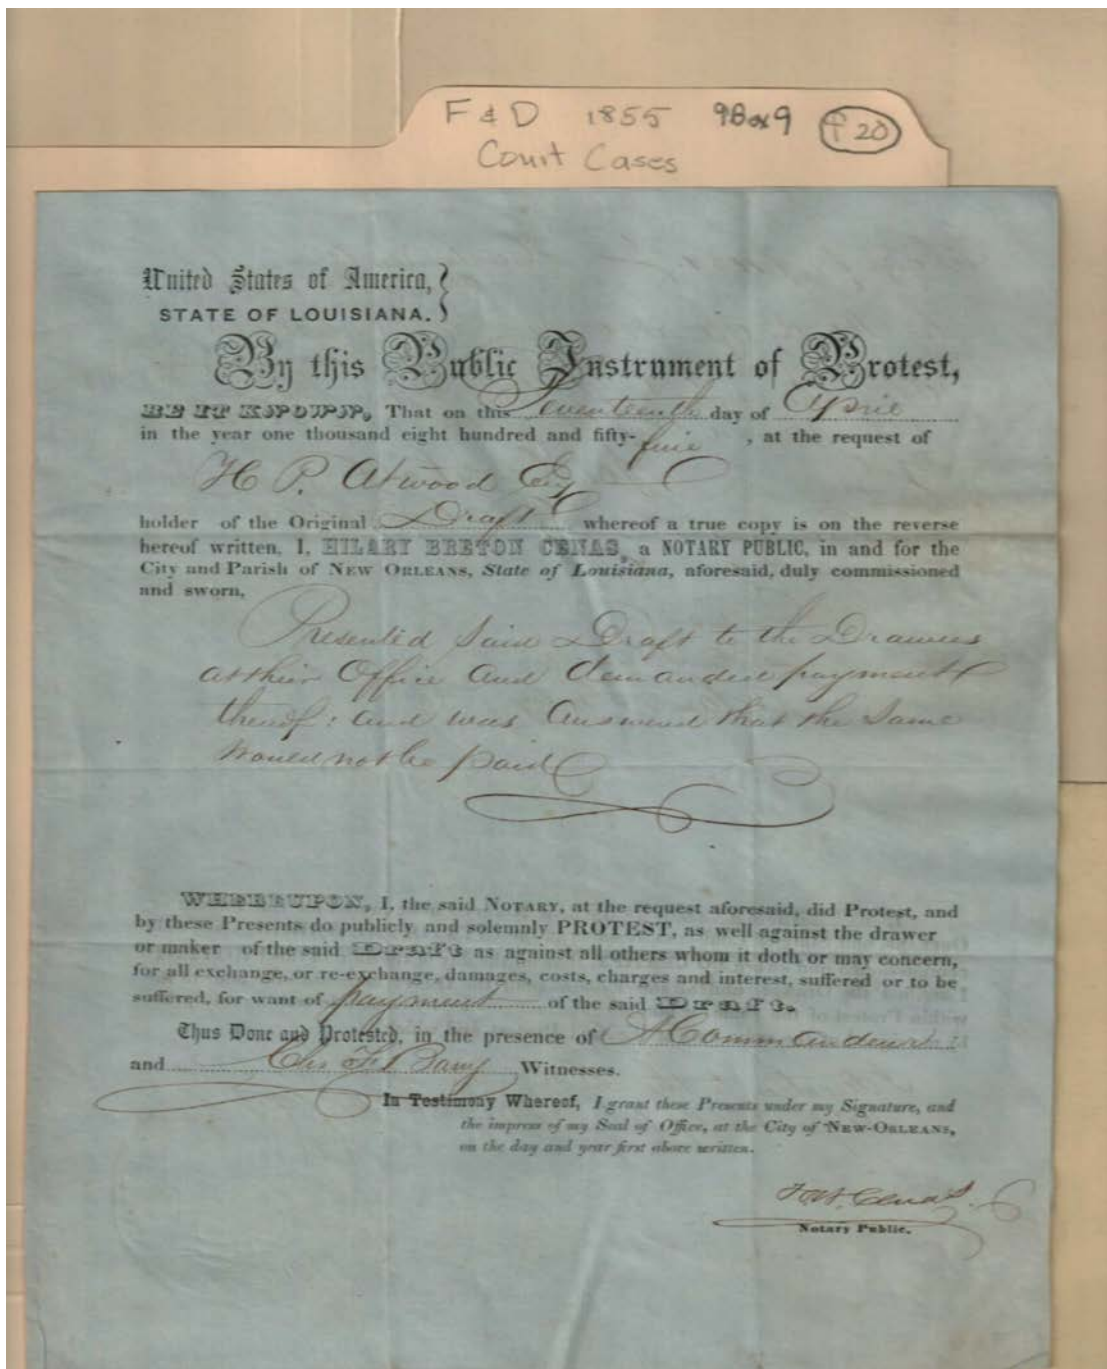 F & D 1855 9Box9 P20
Court Cases
United States of America,
STATE OF LOUISIANA.
By this Public Instrument of Protest,
BE IT KNOWN, That on this Seventeenth day of April
in the year one thousand eight hundred and fifty-five, at the request of
H P. Atwood Esq
holder of the Original Draft whereof a true copy is on the reverse
hereof written, I, HILARY BRETON CENAS, a NOTARY PUBLIC, in and for the
City and Parish of NEW ORLEANS, State of Louisiana, aforesaid, duly commissioned
and sworn,
Presented said Draft to the Drawees
at their Office and demanded payment
thereof: and was answered that the same
would not be paid
WHEREUPON, I, the said NOTARY, at the request aforesaid, did Protest, and
by these Presents do publicly and solemnly PROTEST, as well against the drawer
or maker of the said Draft as against all others whom it doth or may concern,
for all exchange, or re-exchange, damages, costs, charges and interest, suffered or to be
suffered, for want of payment of the said Draft.
Thus Done and Protested, in the presence of A Commandeur
and Chs F. Barry Witnesses.
In Testimony Whereof, I grant these Presents under my Signature, and
the impress of my Seal of Office, at the City of NEW-ORLEANS,
on the day and year first above written.
Cenas
Notary Public.